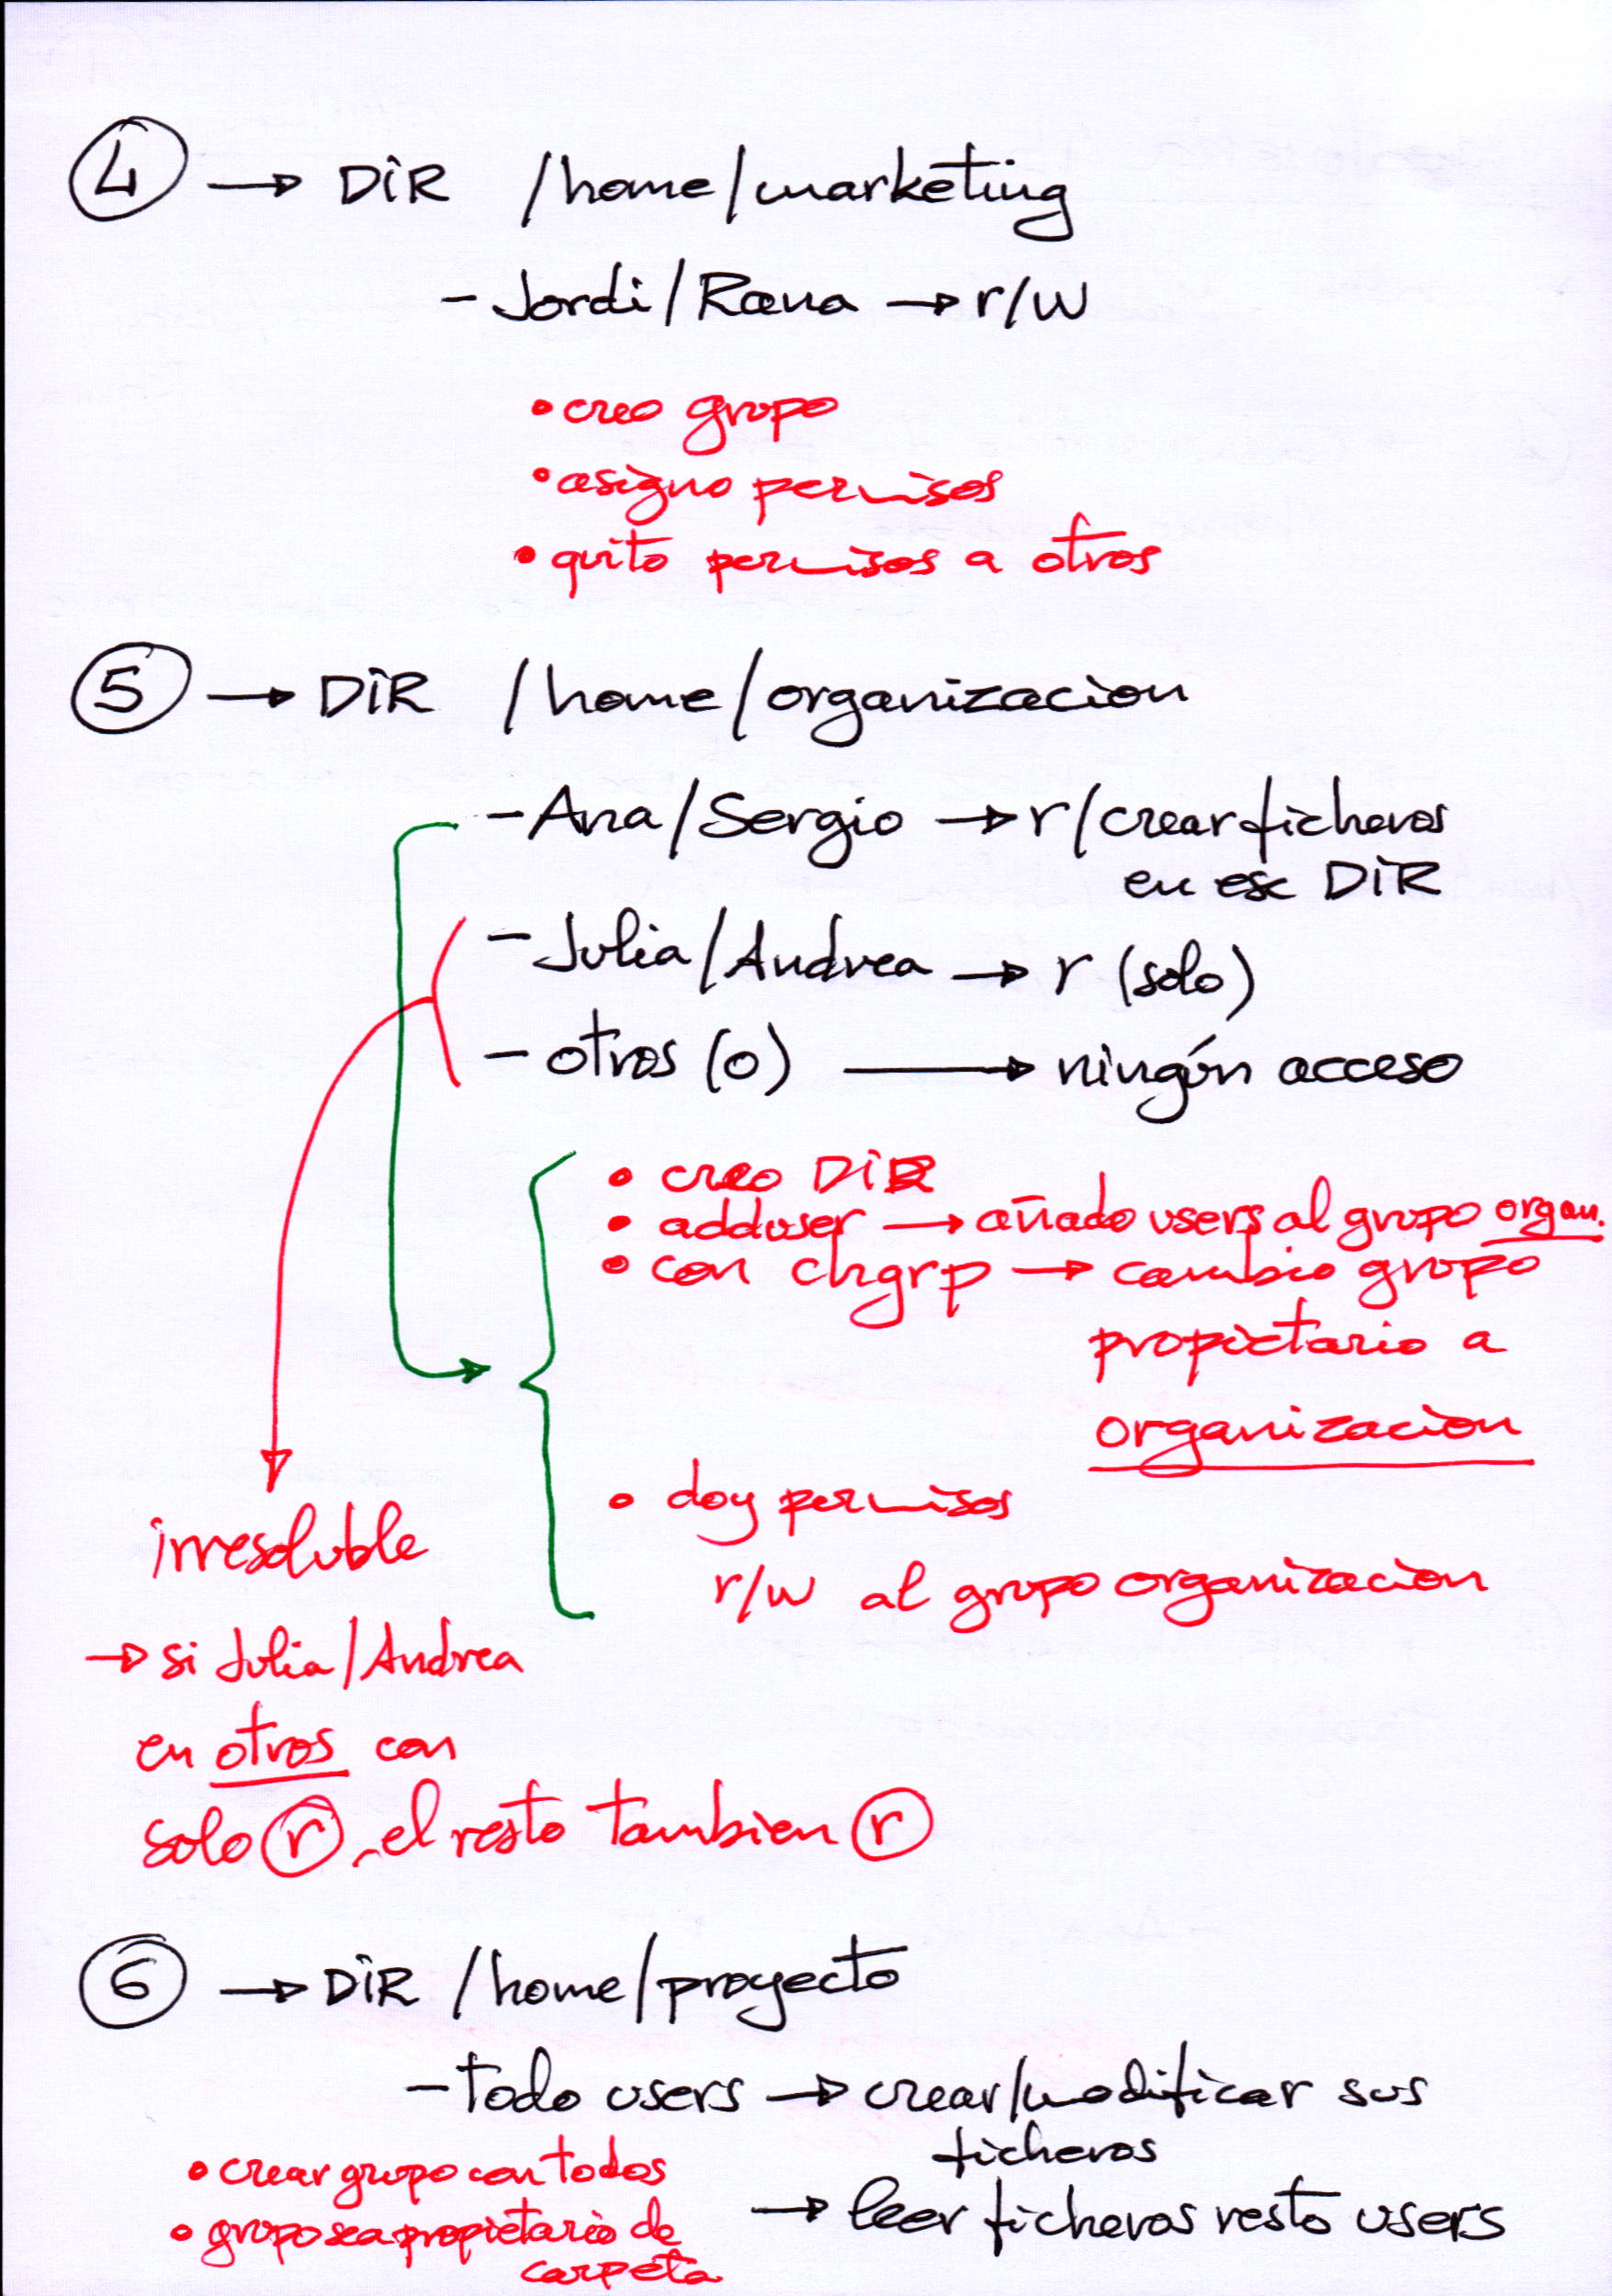 4 → DIR /home/marketing
- Jordi/Raena → r/w
• creo grupo
• asigno permisos
• quito permisos a otros
5 → DIR /home/organizacion
- Ana/Sergio → r/crear ficheros
en ese DIR
- Julia/Andrea → r (solo)
- otros (o) → ningún acceso
• creo DIR
• adduser → añado users al grupo organ.
• con chgrp → cambio grupo
propietario a
organizacion
• doy permisos
r/w al grupo organizacion
irresoluble
→ si Julia/Andrea
en otros con
solo r, el resto tambien r
6 → DIR /home/proyecto
- todo users → crear/modificar sus
ficheros
→ leer ficheros resto users
• crear grupo con todos
• grupo sea propietario de
carpeta